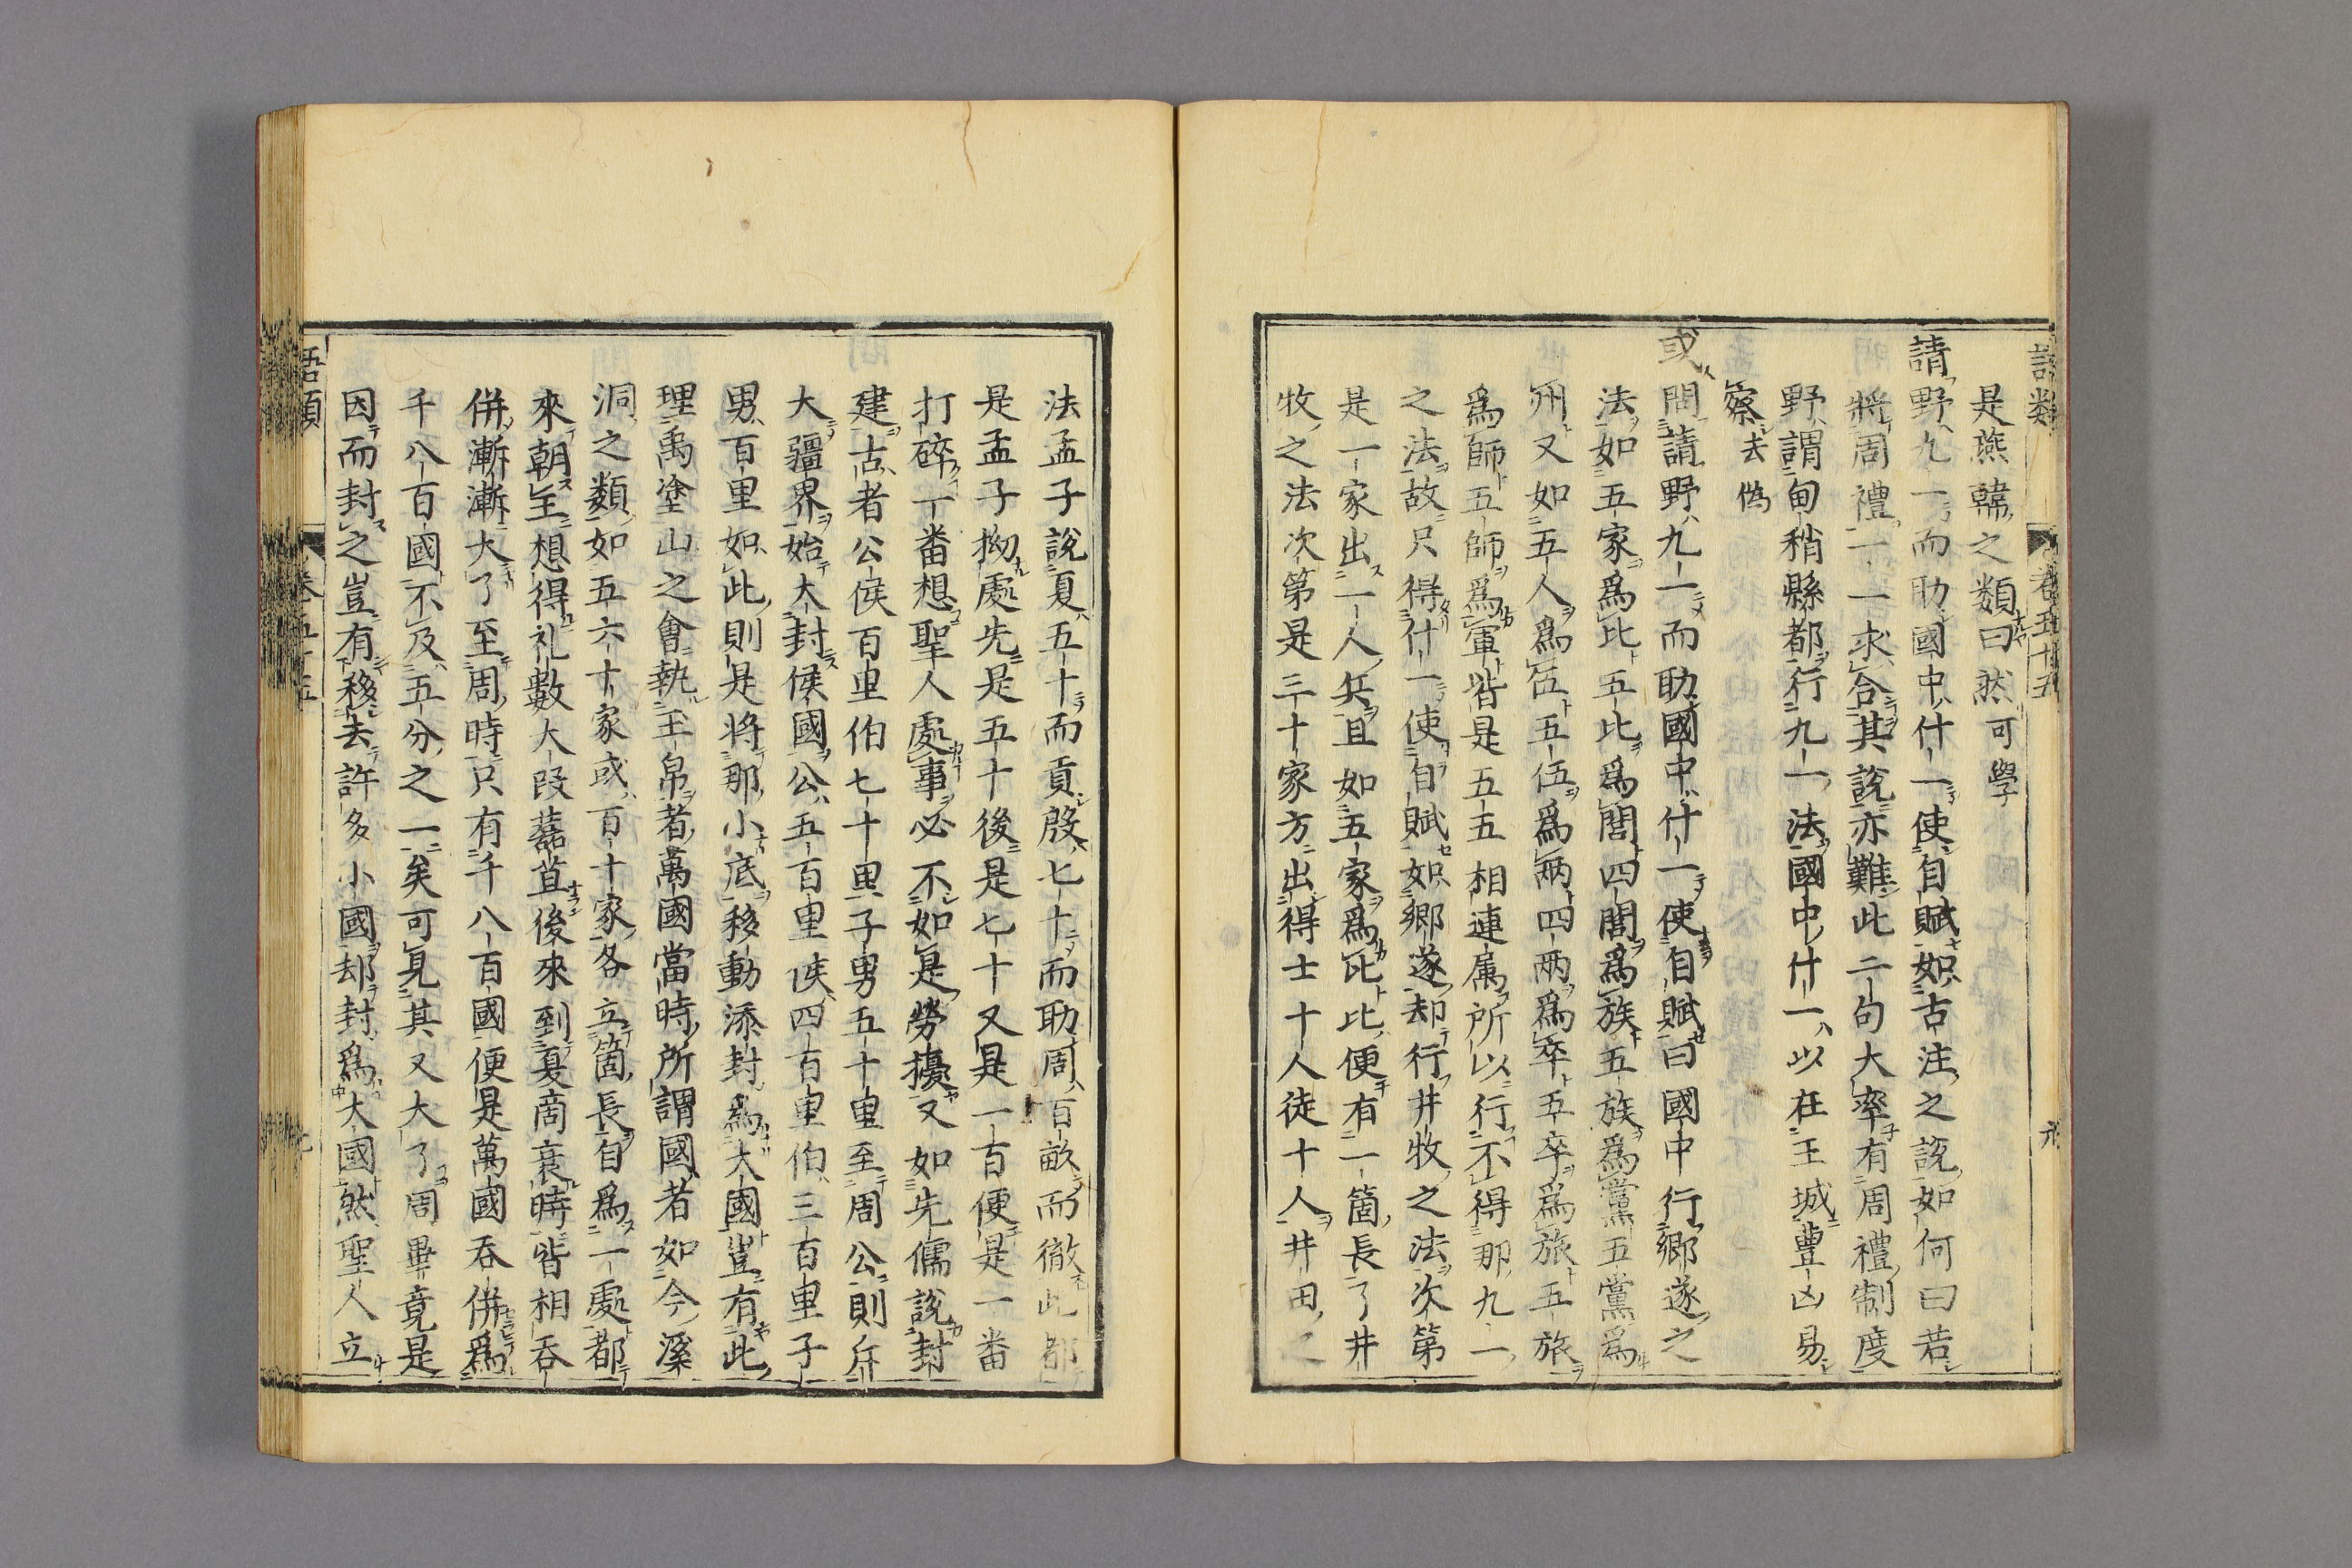 語類 卷五十五
是燕韓之類曰然可學
請野九一而助國中什一使自賦如古注之說如何曰若
將周禮一一求合其說亦難此二句大率有周禮制度
野謂甸稍縣都行九一法國中什一以在王城豐凶易
察去偽
或問請野九一而助國中什一使自賦曰國中行鄉遂之
法如五家為比五比為閭四閭為族五族為黨五黨為
州又如五人為伍五伍為兩四兩為卒五卒為旅五旅
為師五師為軍皆是五五相連屬所以行不得那九一
之法故只得什一使自賦如鄉遂却行井牧之法次第
是一家出一人兵且如五家為比比便有一箇長了井
牧之法次第是三十家方出得士十人徒十人井田之
法孟子說夏五十而貢殷七十而助周百畝而徹此都
是孟子拗處先是五十後是七十又是一百便是一番
打碎一番想聖人處事必不如是勞擾又如先儒說封
建古者公侯百里伯七十里子男五十里至周公則斥
大疆界始大封侯國公五百里侯四百里伯三百里子
男百里如此則是將那小底移動添封為大國豈有此
理禹塗山之會執玉帛者萬國當時所謂國者如今溪
洞之類如五六十家或百十家各立箇長自為一處都
來朝王想得礼數大段藞苴後來到夏商衰時皆相吞
併漸漸大了至周時只有千八百國便是萬國吞併為
千八百國不及五分之一矣可見其又大了周畢竟是
因而封之豈有移去許多小國却封為大國然聖人立
語類 卷五十五